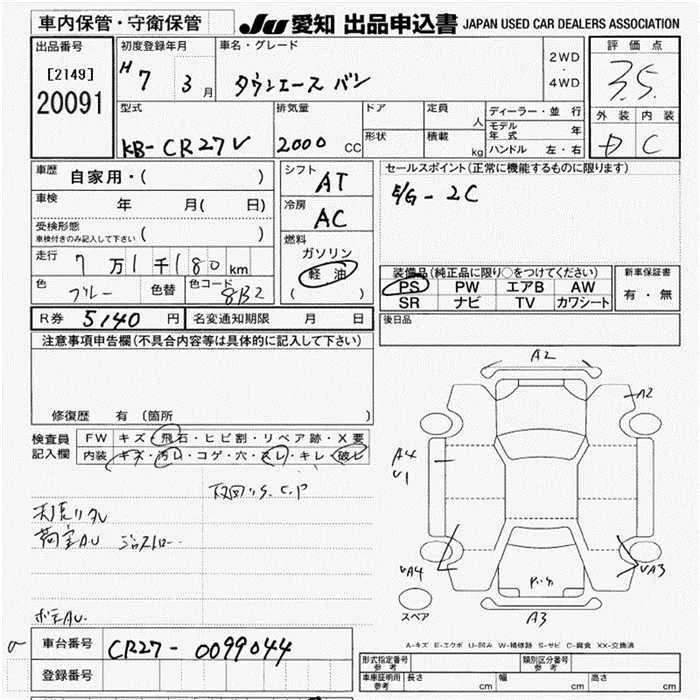 車内保管・守衛保管
JU 愛知 出品申込書 JAPAN USED CAR DEALERS ASSOCIATION
出品番号
[2149]
20091
初度登録年月
H 7 3 月
車名・グレード
タウンエース バン
2WD
・
4WD
評価点
3.5
外装 内装
D C
型式
KB-CR27V
排気量
2000 CC
ドア
形状
定員
人
積載
kg
ディーラー・並行
モデル年式 年
ハンドル 左・右
車歴 自家用・( )
車検 年 月( 日)
受検形態
車検付きのみ記入して下さい ( )
走行 7万1千180km
色 ブルー 色替 色コード 8B2
シフト
AT
冷房
AC
燃料
ガソリン
軽油
( )
セールスポイント(正常に機能するものに限ります)
E/G-2C
装備品(純正品に限り○をつけてください)
PS PW エアB AW
SR ナビ TV カワシート
新車保証書
有・無
R券 5140 円 名変通知期限 月 日
後日品
注意事項申告欄(不具合内容等は具体的に記入して下さい)
修復歴 有(箇所 )
検査員
記入欄
FW キズ・飛石・ヒビ割・リペア跡・X要
内装 キズ・汚レ・コゲ・穴・スレ・キレ・破レ
荷室AU
A2
A2
A4
U1
UA4
UA3
A3
スペア
A-キズ E-エクボ U-凹み W-補修跡 S-サビ C-腐食 XX-交換済
車台番号 CR27-0099044
登録番号
形式指定番号
参考
類別区分番号
参考
車庫証明用
参考
長さ cm 幅 cm 高さ cm